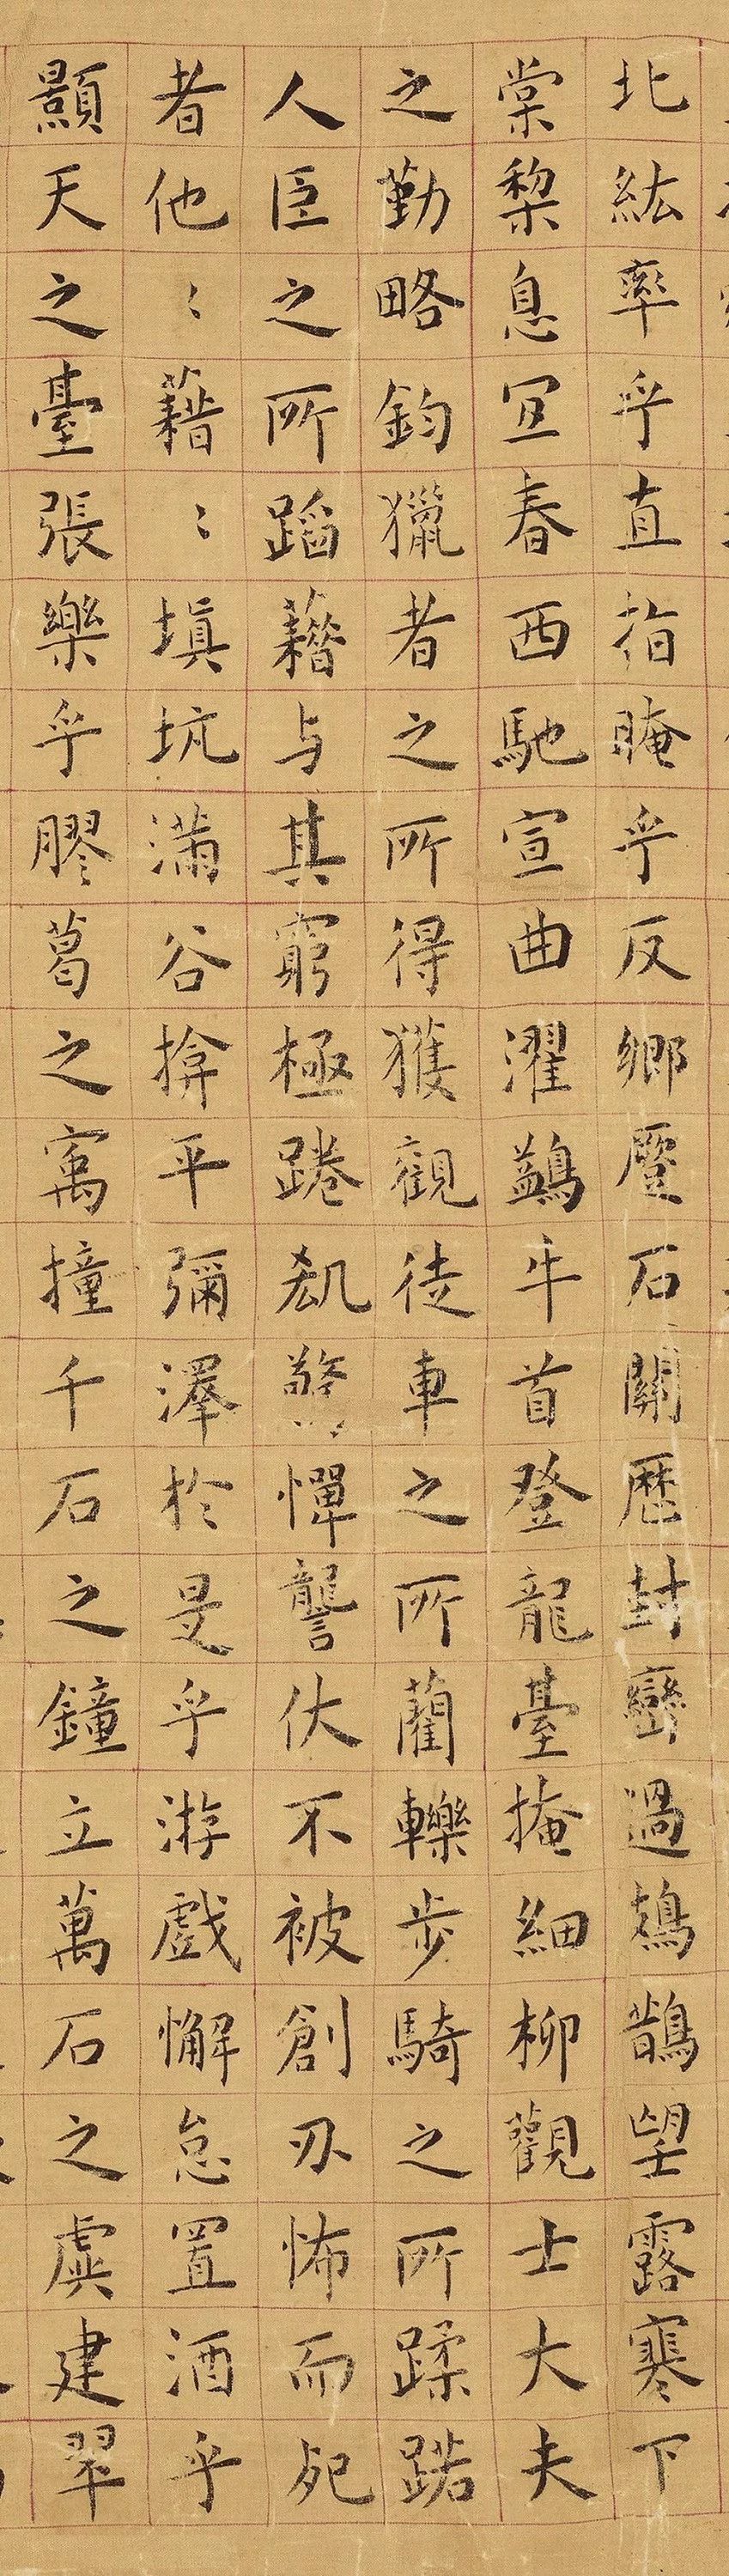 北紘率乎直指晻乎反鄉蹷石關歷封巒過鳷鵲望露寒下
棠梨息宜春西馳宣曲濯鷁牛首登龍臺掩細柳觀士大夫
之勤略鈞獵者之所得獲觀徒車之所藺轢步騎之所蹂踖
人臣之所蹈藉与其窮極㩻驚憚讋伏不被創刃怖而死
者他〻藉〻填坑滿谷揜平彌澤於是乎游戲懈怠置酒乎
顥天之臺張樂乎膠葛之㝢撞千石之鐘立萬石之虡建翠